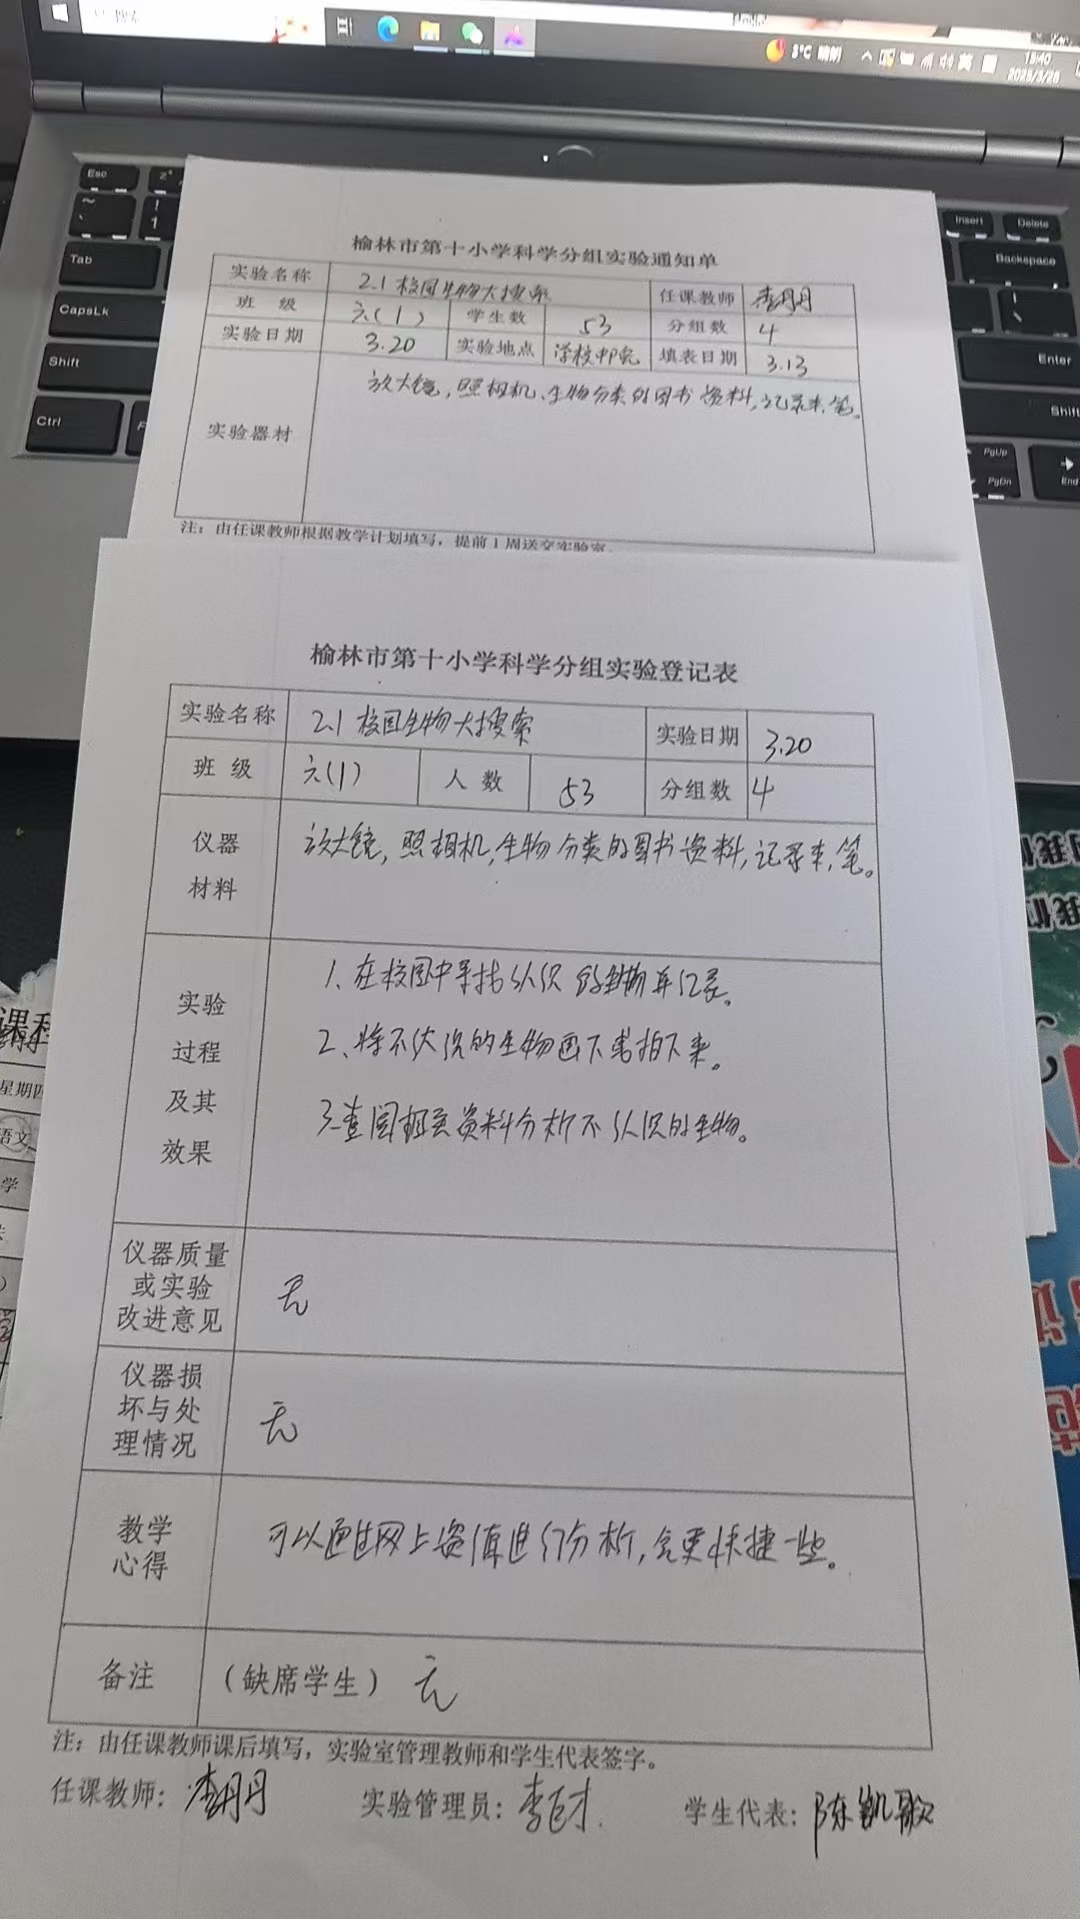 3°C 晴朗
英
15:40
2025/3/26
Esc
Insert
Delete
~
!
1
Tab
Backspace
CapsLk
Shift
Enter
Ctrl
Shift
PgUp
PgDn
End
榆林市第十小学科学分组实验通知单
实验名称 2.1 校园生物大搜索 任课教师 李丹丹
班 级 六(1) 学生数 53 分组数 4
实验日期 3.20 实验地点 学校 填表日期 3.13
实验器材 放大镜,照相机、生物分类的图书资料,记录本,笔。
注:由任课教师根据教学计划填写,提前1周送交实验室。
榆林市第十小学科学分组实验登记表
实验名称 2.1 校园生物大搜索 实验日期 3.20
班 级 六(1) 人 数 53 分组数 4
仪器
材料
放大镜,照相机,生物分类的图书资料,记录本,笔。
实验
过程
及其
效果
1、在校园中寻找认识的生物并记录。
2、将不认识的生物画下或拍下来。
3、查阅相关资料分析不认识的生物。
仪器质量
或实验
改进意见
无
仪器损
坏与处
理情况
无
教学
心得
可以通过网上资源进行分析,会更快捷一些。
备注 (缺席学生) 无
注:由任课教师课后填写,实验室管理教师和学生代表签字。
任课教师: 李丹丹 实验管理员: 李 学生代表: 陈凯歌
星期四
语文
学